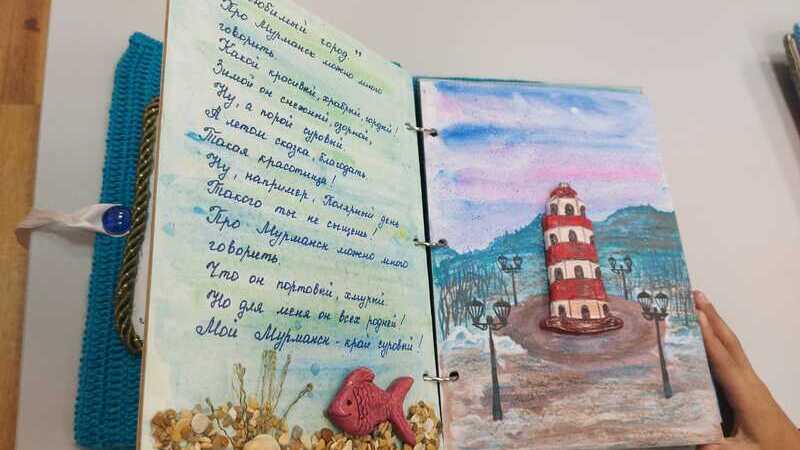 Любимый город"
Про Мурманск можно много
говорить.
Какой красивый, храбрый, гордый!
Зимой он снежний, озорной,
Ну, а порой суровый.
А летом сказка, благодать.
Такая красотища!
Ну, например, Полярный день
Такого ты не сыщешь!
Про Мурманск можно много
говорить.
Что он портовый, хмурый.
Но для меня он всех родней!
Мой Мурманск - край суровый!